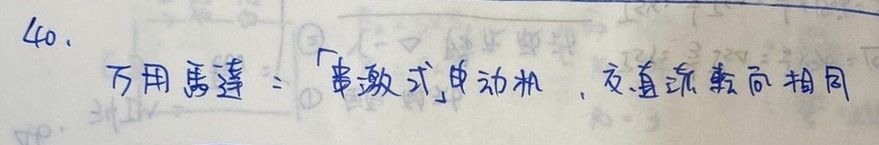 40.
万用馬達：「串激式」电动机，交直流転向相同